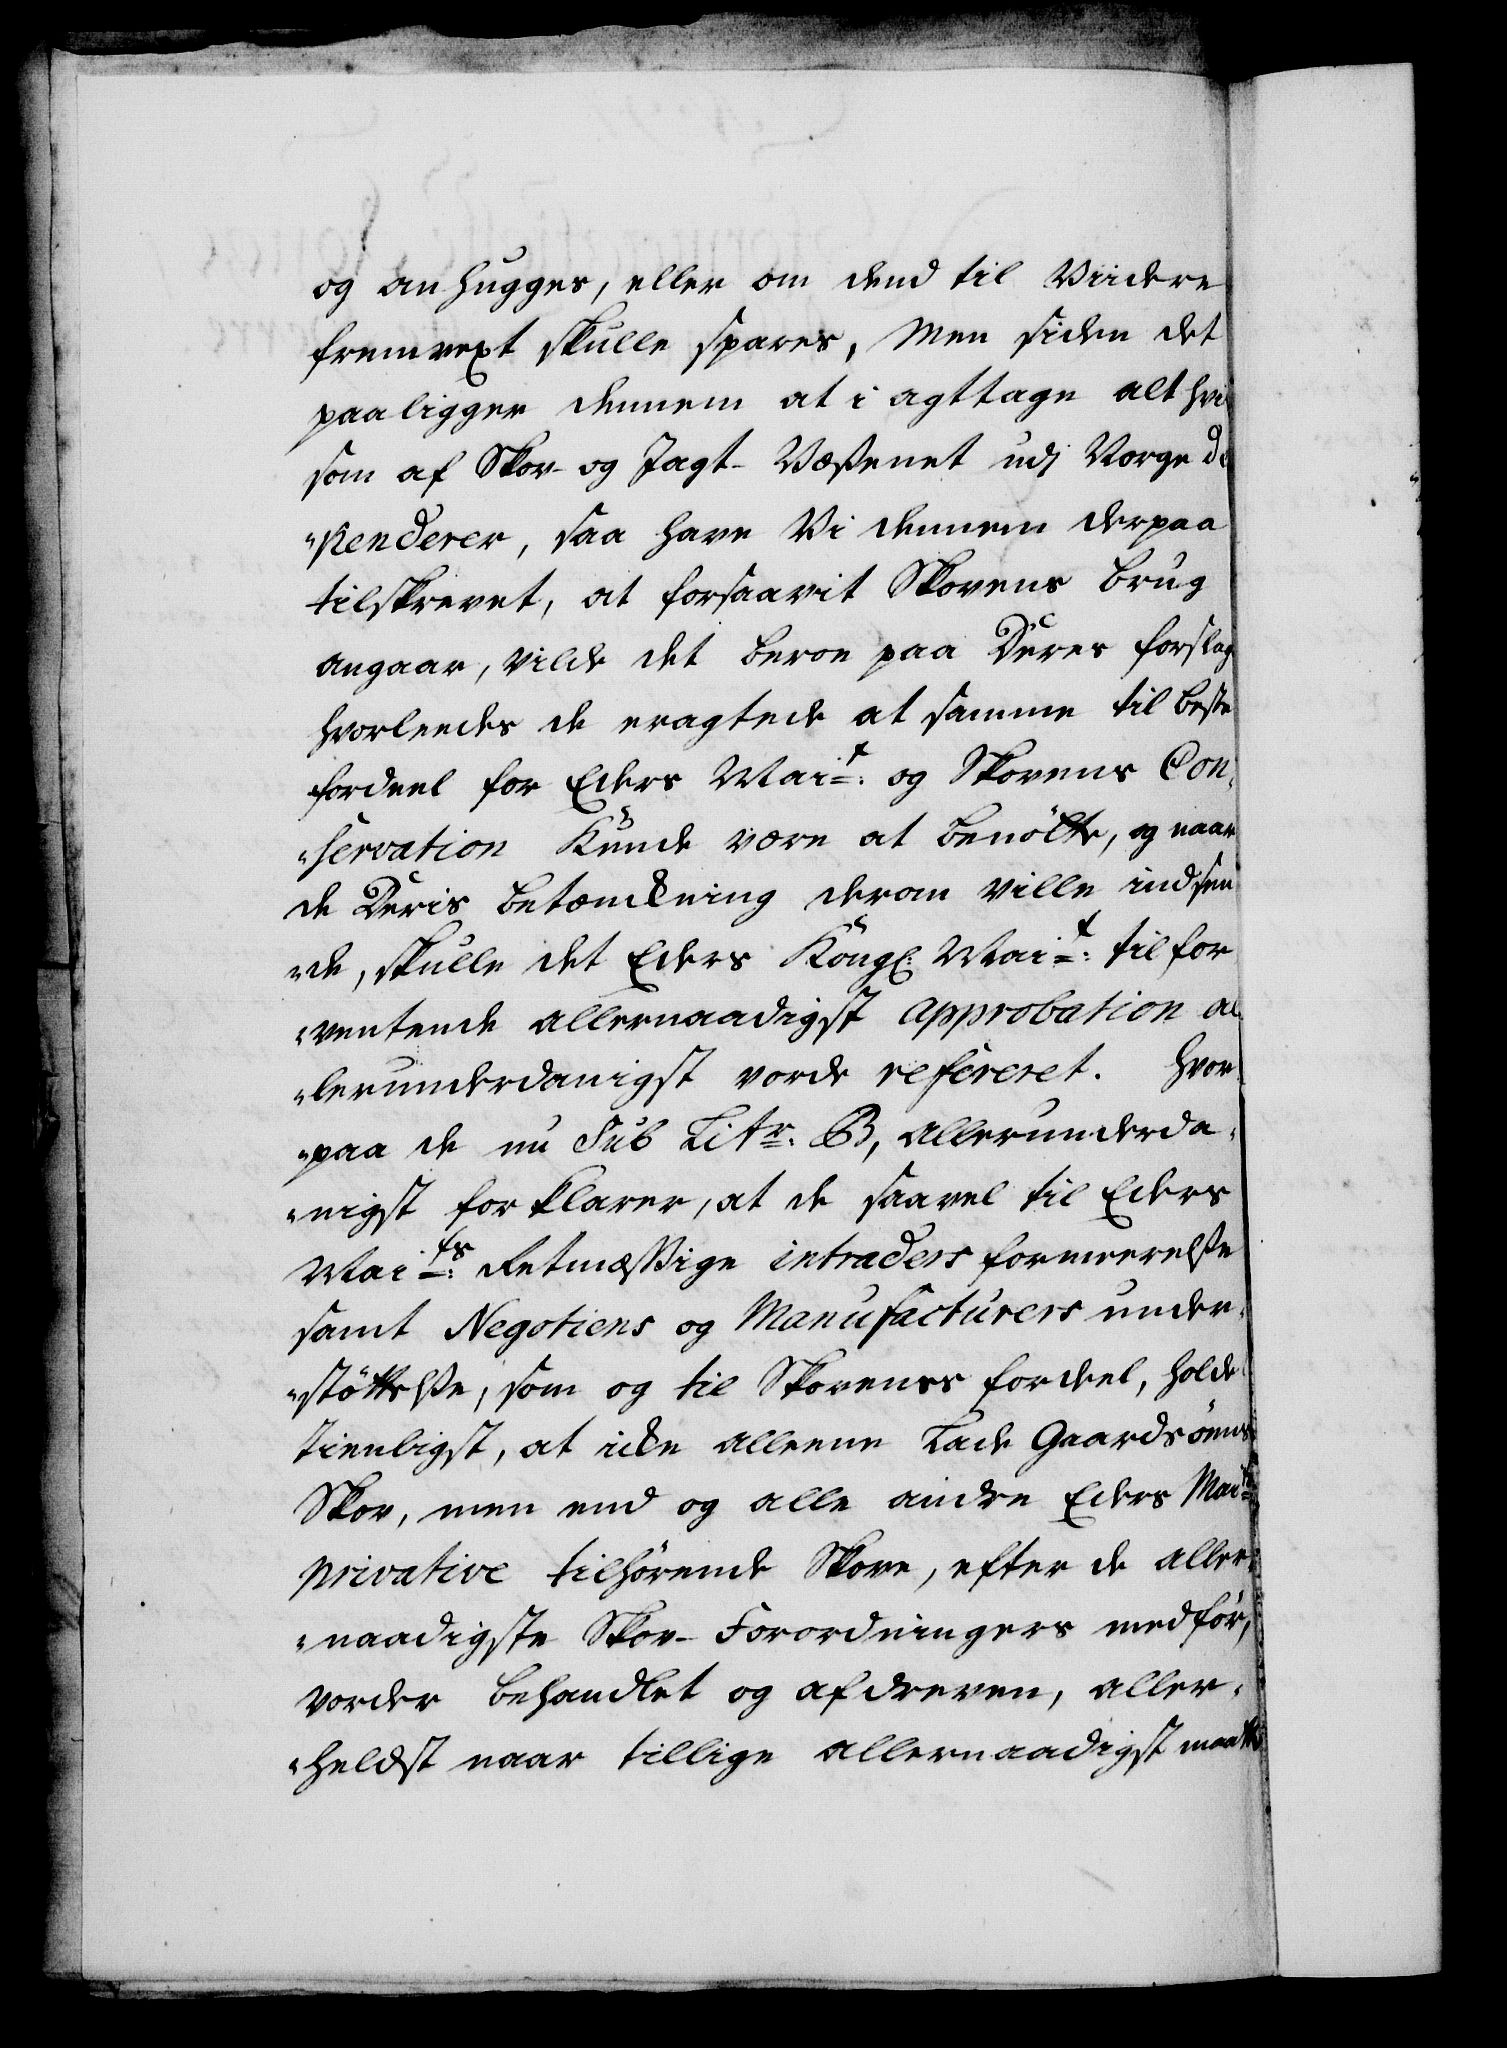 og anhugges, eller om dend til Viidere
fremvext skulle spares, Men siden det
paaligger dennem at i agttage alt hvi
som af Skov- og Jagt- Væßenet udj Norge De
"penderer, saa have Vi dennem derpaa
tilskrevet, at forsaavit Skovens brug
angaar, vilde det beroe paa Deres forslag
hvorleedes de eragtede at samme til beste
fordeel for Eders Mai:t og Skovens Con,
"servation Kunde være at benötte, og naar
de Deris betænckning derom ville indsen
"de, skulle det Eders Kongl: Mai:t til for
"ventende allernaadigst approbation al
"lerunderdanigst vorde refereret. hvor
"paa de nu Sub Litr. B, allerunderda,
"nigst forklarer, at de saavel til Eders
Mai:ts Retmæssige intraders formeerelße
samt Negotiens og Manufacturers under,
"stöttelße, som og til Skovenes fordeel, holde
tienligst, at icke alleene Lade Gaardsöens
Skov, men end og alle andre Eders Mai:ts
privative tilhörende Skove, efter de aller
"naadigste Skov- Forordningers medför,
vorder behandlet og afdreven, aller,
"heldst naar tillige allernaadigst maatte